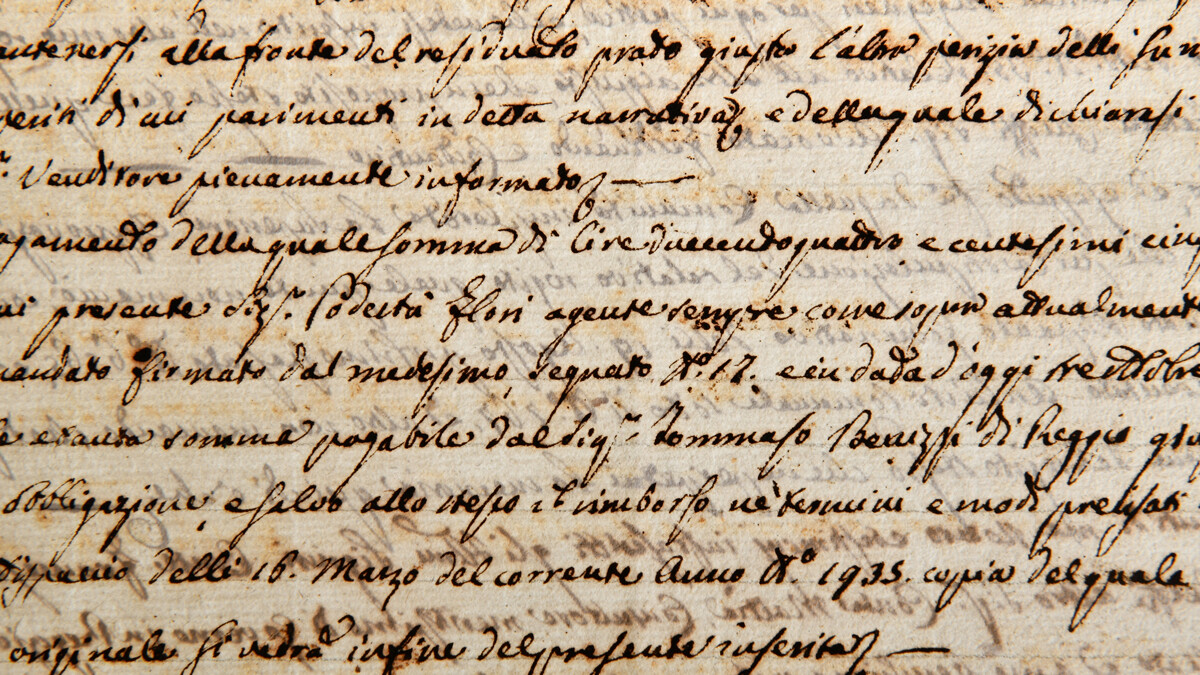 antenersi alla fronte del residuato prato giusta l'altra perizia delli Sun
periti di cui parimenti in detta narrativa, e della quale dichiarasi
Venditore pienamente informato, —
agamento della quale somma di lire duecentoquattro e centesimi cinq
ui presente Sigr. Podestà Flori agente sempre come sopra attualment
mandato firmato dal medesimo, segnato No. 17. e in data d'oggi tre Ottobre
e tanta somma pagabile dal Sigr. Tommaso di Reggio giu
obbligazione, e salvo allo stesso il rimborso ne' termini e modi precisati
dispaccio delli 16. Marzo del corrente Anno No. 1935. copia del quale
originale si vedrà in fine del presente inserita, —